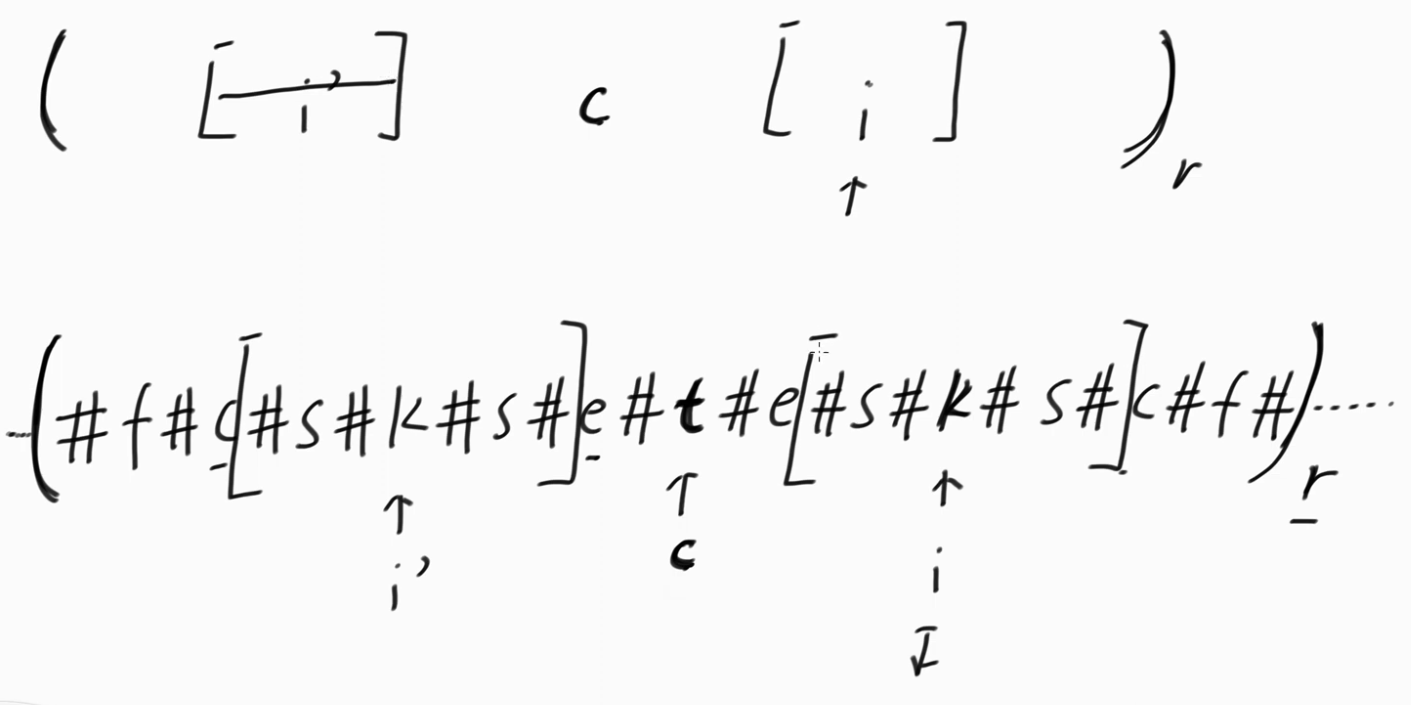 ( [ i' ] c [ i ] )
↑ r
(#f#c[#s#k#s#]e#t#e[#s#k#s#]c#f#).....
↑ ↑ ↑ r
i' c i